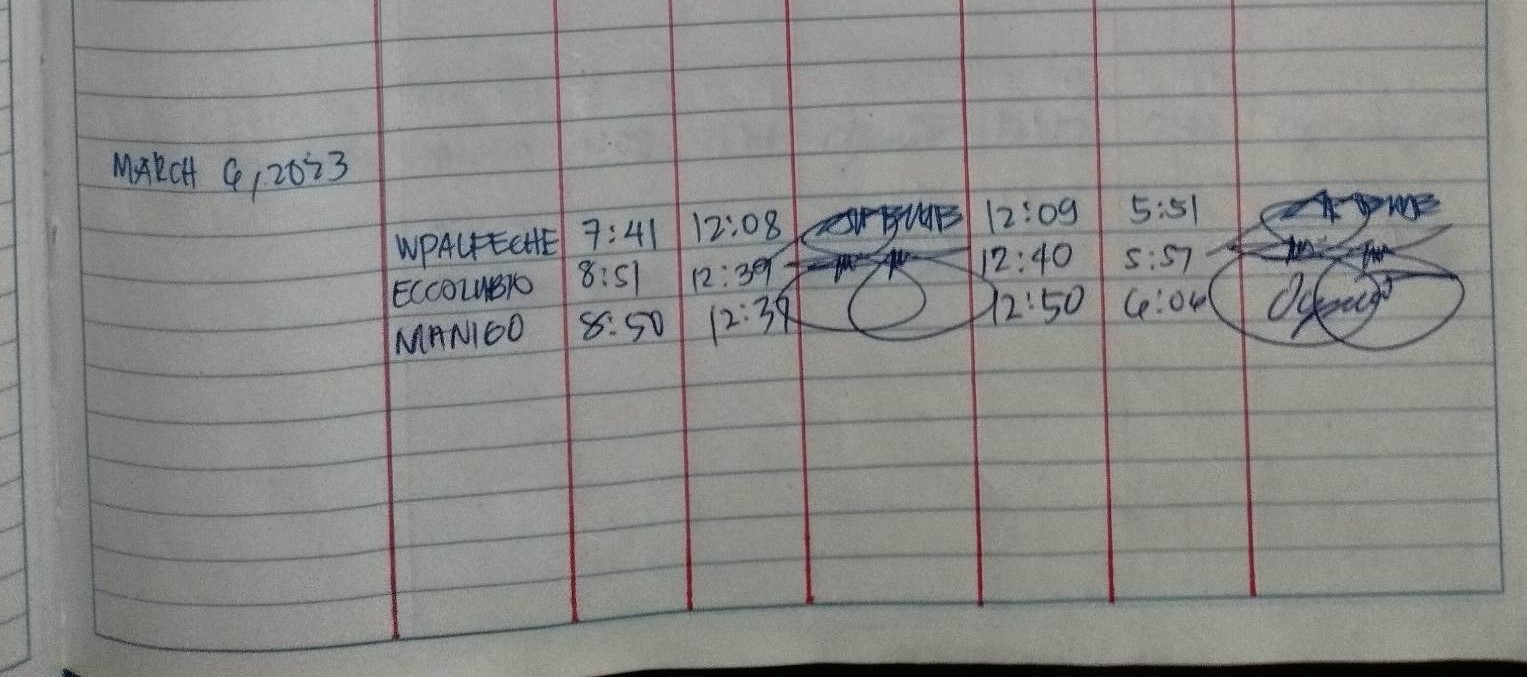 MARCH 6, 2023
WPALFECHE 7:41 12:08 12:09 5:51
ECCOLUBIO 8:51 12:39 12:40 5:57
MANIGO 8:50 12:39 12:50 6:04